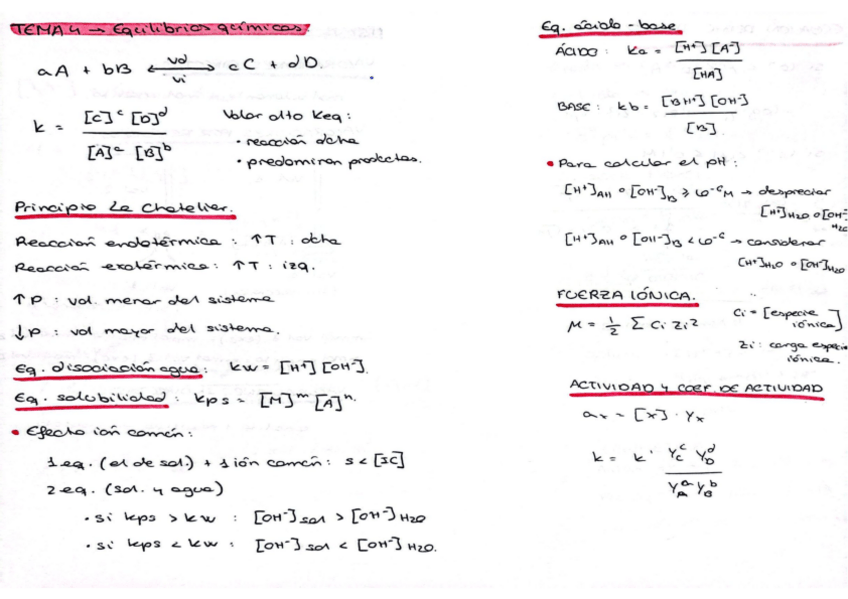 TEMA 4 → Equilibrios químicos.
aA + bB ⇄ cC + dD.
vd
vi
k = [C]^c [D]^d / [A]^a [B]^b
Valor alto Keq:
• reacción dcha
• predominan productos.
Principio Le Chatelier.
Reacción endotérmica : ↑T : dcha
Reacción exotérmica : ↑T : izq.
↑P : vol. menor del sistema
↓P : vol mayor del sistema.
Eq. disociación agua : kw = [H⁺] [OH⁻].
Eq. solubilidad : kps = [M]^m [A]^n.
• Efecto ión común :
1 eq. (el de sol.) + 1 ión común : s < [SC]
2 eq. (sol. y agua)
• si kps > kw : [OH⁻]sol > [OH⁻]H2O
• si kps < kw : [OH⁻]sol < [OH⁻]H2O.
Eq. ácido - base
ÁCIDO : ka = [H⁺] [A⁻] / [HA]
BASE : kb = [BH⁺] [OH⁻] / [B]
• Para calcular el pH :
[H⁺]AH o [OH⁻]B ≥ 10⁻⁶M → despreciar
[H⁺]H2O o [OH⁻]H2O
[H⁺]AH o [OH⁻]B < 10⁻⁶ → considerar
[H⁺]H2O o [OH⁻]H2O
FUERZA IÓNICA.
M = 1/2 Σ Ci Zi²
Ci = [especie iónica]
Zi : carga especie
iónica.
ACTIVIDAD y COEF. DE ACTIVIDAD
ax = [x] · Yx
k = k' Yc^c YD^d / YA^a YB^b